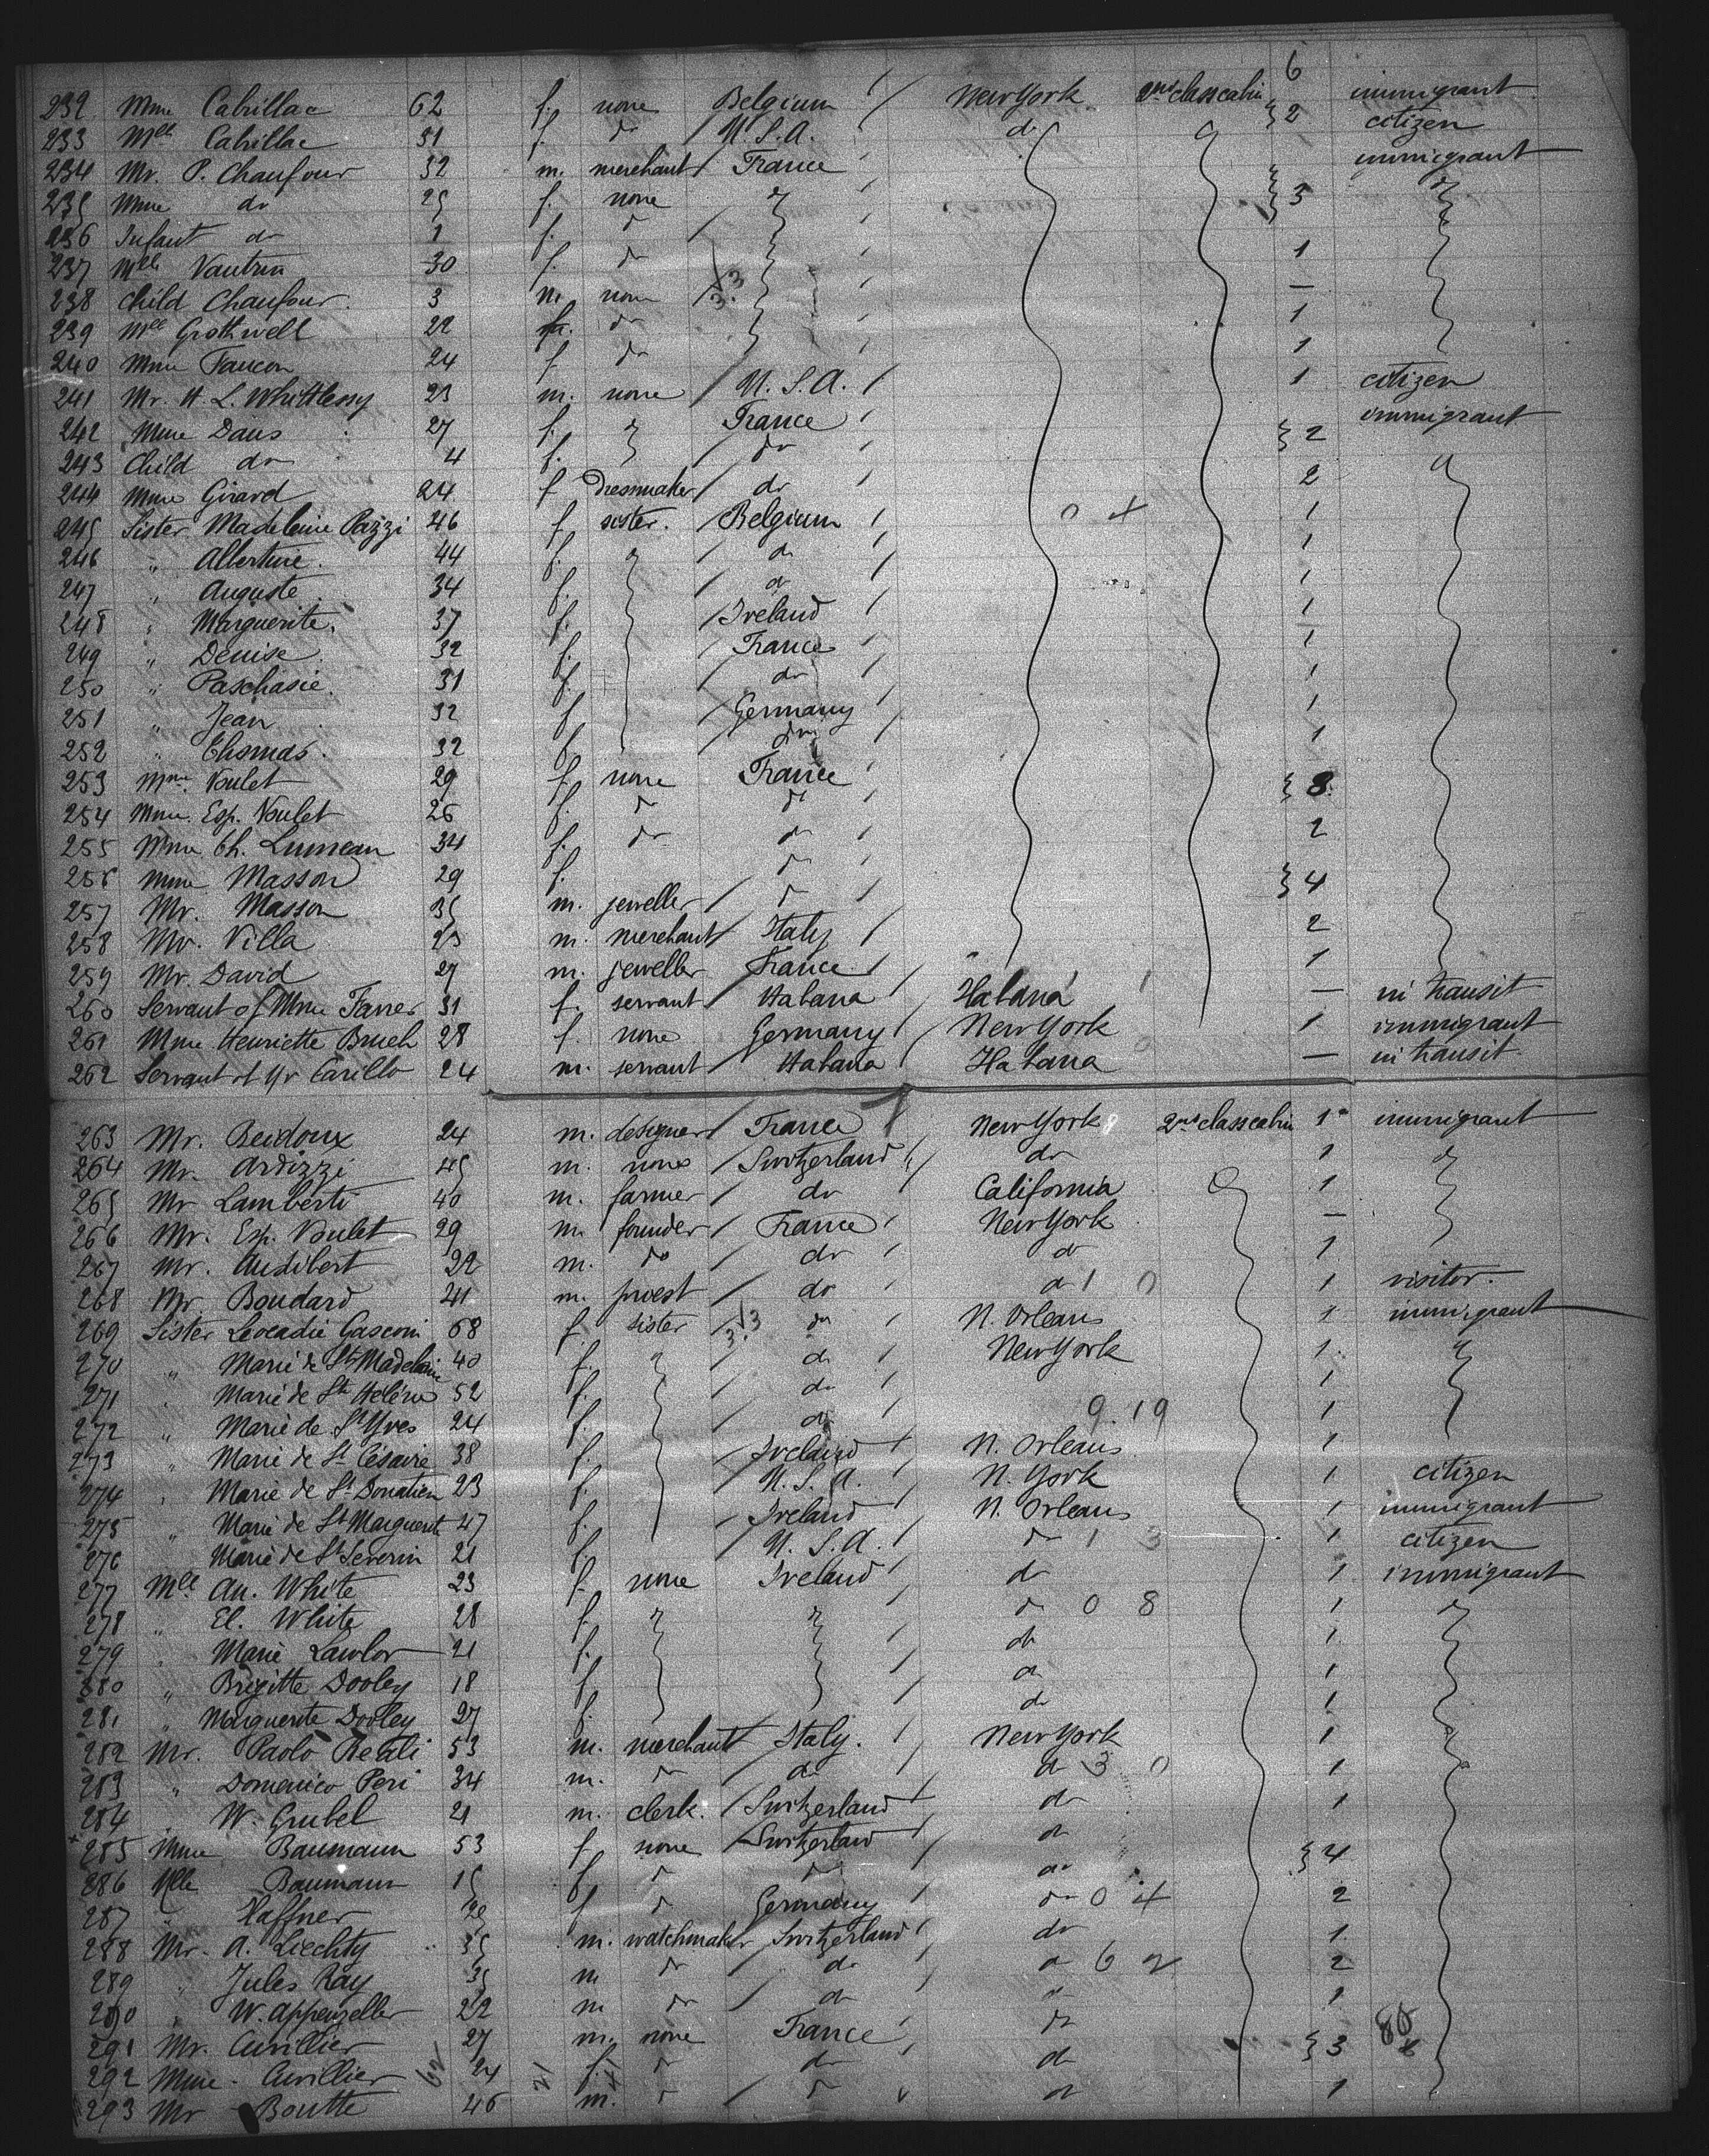 6
232 Mme Cabrillac 62 f. none Belgium / New York 2nd class cabin 2 immigrant
233 Mlle Cabrillac 31 f. do U.S.A. do citizen
234 Mr. P. Chaufour 32 m. merchant France immigrant
235 Mme do 25 f. none 3
236 Infant do 1 f. do
237 Mlle Vautrin 30 f. do 1
238 Child Chaufour 3 m. none —
239 Mlle Grothwell 22 do 1
240 Mme Faucon 24 f. do 1
241 Mr. H. L. Whittlesey 23 m. none U.S.A. 1 citizen
242 Mme Daus 27 f. France 2 immigrant
243 Child do 4 f. do
244 Mme Girard 24 f dressmaker do 2
245 Sister Madeleine Pazzi 46 f. sister. Belgium 1
246 " Albertine. 44 f. do 1
247 " Auguste 34 f. do 1
248 " Marguerite. 37 f. Ireland 1
249 " Denise 32 f. France 1
250 " Paschasie. 31 f. do 1
251 " Jean 32 f. Germany 1
252 " Thomas. 32 f. do 1
253 Mme. Voulet 29 f. none France 8
254 Mme. Esp. Voulet 26 f. do do
255 Mme Ch. Lumeau 34 f. do do 2
256 Mme Masson 29 f. do 4
257 Mr. Masson 35 m. jeweller do
258 Mr. Villa 23 m. merchant Italy 2
259 Mr. David 27 m. jeweller France 1
260 Servant of Mme Farrer 31 f. servant Habana Habana — in transit
261 Mme Henriette Bruch 28 f. none Germany New York 1 immigrant
262 Servant of Mr Carillo 24 m. servant Habana Habana — in transit
263 Mr. Beidoux 24 m. designer France New York 2nd class cabin 1 immigrant
264 Mr. Ardizzi 45 m. none Switzerland do 1
265 Mr Lamberti 40 m. farmer do California 1
266 Mr. Esp. Voulet 29 m. founder France New York —
267 Mr. Audibert 22 m. do do do 1
268 Mr. Boudard 41 m. priest do do 1 visitor.
269 Sister Leocadie Gasconi 68 f. sister do N. Orleans 1 immigrant
270 " Marie de Ste Madeleine 40 f. do New York 1
271 " Marie de Ste Hélène 52 f. do 1
272 " Marie de St Yves 24 f. do 1
273 " Marie de St Césaire 38 f. Ireland N. Orleans 1
274 " Marie de St Donatien 23 f. U.S.A. N. York 1 citizen
275 " Marie de St Marguerite 47 f. Ireland N. Orleans 1 immigrant
276 Marie de St Severin 21 f. U.S.A. do 1 citizen
277 Mlle An. White 23 f. none Ireland do 1 immigrant
278 " El. White 28 f. do 1
279 " Marie Lawlor 21 f. do 1
280 " Brigitte Dooley 18 f. do 1
281 " Marguerite Dooley 27 f. do 1
282 Mr. Paolo Reali 53 m. merchant Italy. New York 1
283 " Domenico Peri 34 m. do do do 1
284 W. Grubel 21 m. clerk. Switzerland do 1
285 Mme Baumann 53 f. none Switzerland do 4
286 Mlle Baumann 15 f do do do
287 " Haffner f do Germany do 2
288 Mr. A. Liechty 35 m. watchmaker Switzerland do 1
289 " Jules Ray 35 m do do do 2
290 " W. Appenzeller 22 m do do 1
291 Mr. Cuvillier 27 m. none France do 3
292 Mme. Cuvillier 24 f. do do do
293 Mr Boutte 46 m. do do do 1